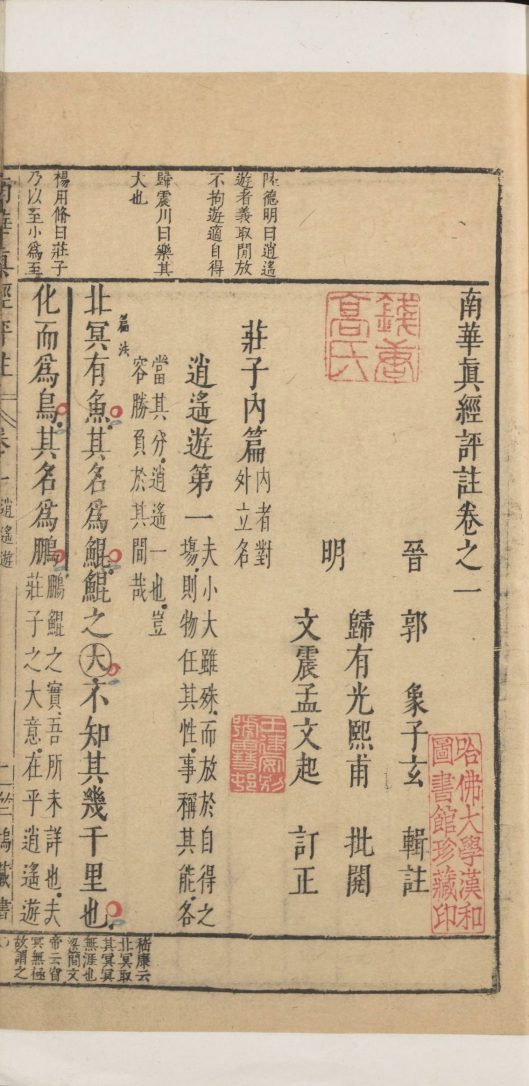 南華眞經評註卷之一
晉 郭 象子玄 輯註
明
歸有光熙甫 批閱
文震孟文起 訂正
莊子內篇
內者對
外立名
逍遙遊第一
夫小大雖殊而放於自得之
場則物任其性事稱其能各
當其分逍遙一也豈
容勝負於其間哉
篇法
北冥有魚其名爲鯤鯤之大不知其幾千里也
化而爲鳥其名爲鵬
鵬鯤之實吾所未詳也夫
莊子之大意在乎逍遙遊
陸德明曰逍遙
遊者義取閒放
不拘遊適自得
歸震川曰樂其
大也
楊用脩曰莊子
乃以至小爲至
嵇康云
北冥取
其冥冥
無涯也
梁簡文
帝云窅
冥無極
故謂之
南華眞經評註
卷一
逍遙遊
錢唐
高氏
哈佛大學漢和
圖書館珍藏印